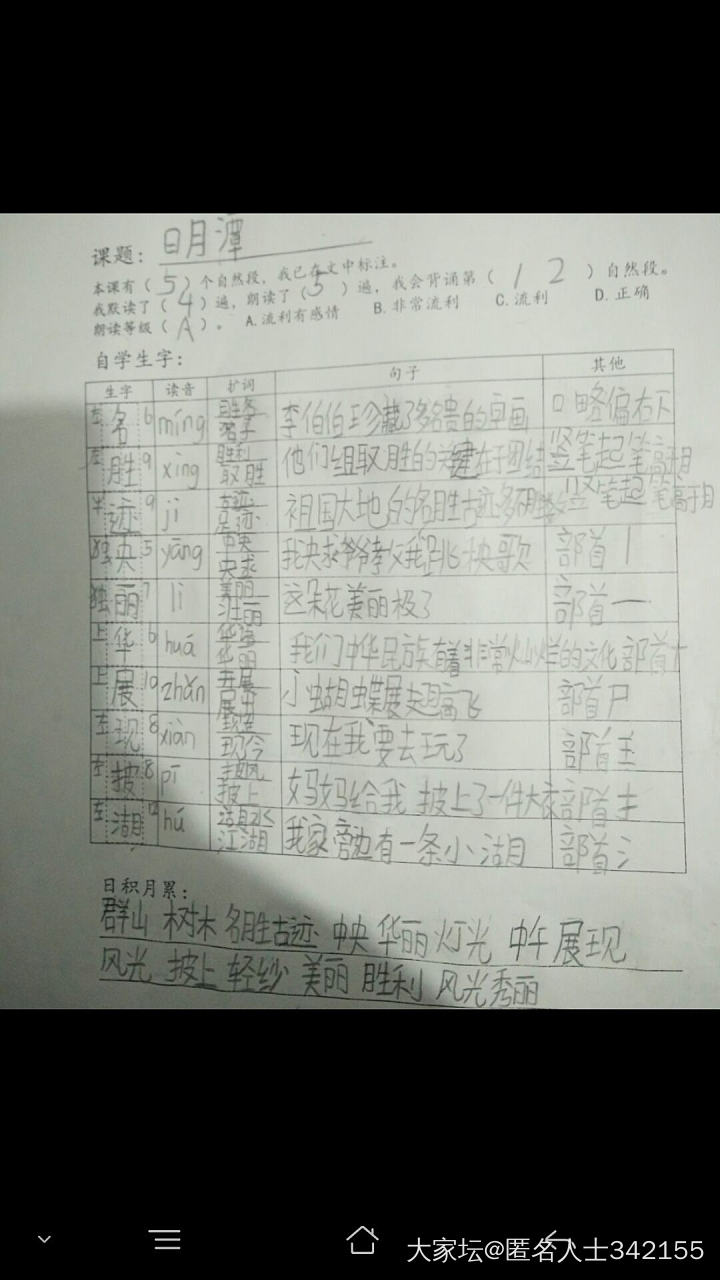 课题：日月潭
本课有（5）个自然段，我已在文中标注。
我默读了（4）遍，朗读了（3）遍，我会背诵第（1 2）自然段。
朗读等级（A）。 A.流利有感情 B.非常流利 C.流利 D.正确
自学生字：
生字 读音 扩词 句子 其他
名 6 míng 李伯伯珍藏了多名贵的 画 口略偏右下
左 胜 9 xìng 胜利 取胜 他们组取胜的关键在于团结 竖笔起笔高于月
半 迹 9 jì 古迹 足迹 祖国大地的名胜古迹多 竖笔起笔高于月
独 央 5 yāng 中央 央求 我央求爷爷教我跳秧歌 部首丨
独 丽 7 lì 美丽 壮丽 这朵花美丽极了 部首一
上 华 6 huá 华丽 我们中华民族有着非常灿烂的文化 部首十
上 展 10 zhǎn 展出 小蝴蝶展翅高飞 部首尸
左 现 8 xiàn 现在 现今 现在我要去玩了 部首王
左 披 8 pī 披风 披上 妈妈给我披上了一件大衣 部首扌
左 湖 12 hú 湖水 江湖 我家旁边有一条小湖 部首氵
日积月累：
群山 树木 名胜古迹 中央 华丽 灯光 中午 展现
风光 披上 轻纱 美丽 胜利 风光秀丽
大家坛@匿名人士342155